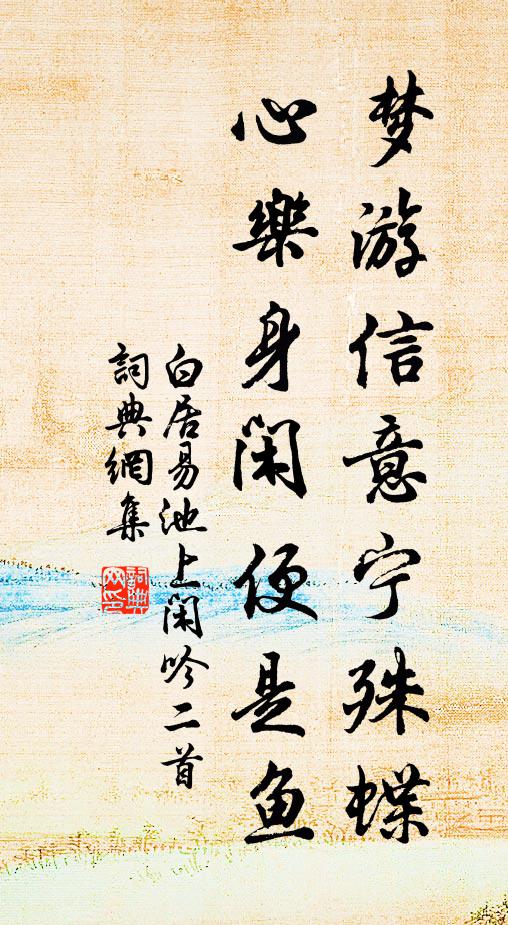 梦游信意宁殊蝶
心樂身闲便是鱼
白居易池上闲吟二首
詞典網集